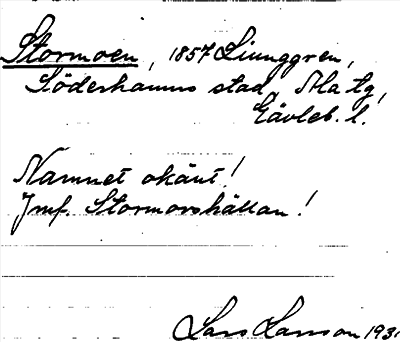 Stormoen, 1857 Ljunggren,
Söderhamns stad, Ala tg,
Gävleb. l.
Namnet okänt!
Jmf. Stormorshällan!
Lars Larsson 193